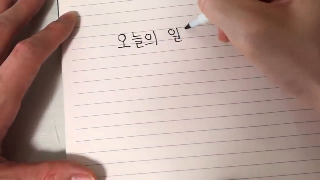 오늘의 일